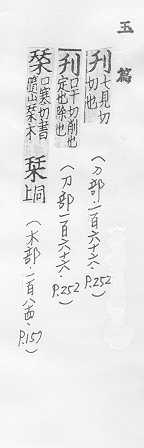 玉篇
刌 七見切 切也
(刀部·一百六十六·P.252)
刊 口干切削也 定也除也
(刀部一百六十六·P.252)
栞 口寒切書 隨山栞木 𣓁 同上
(木部·一百八四·P.157)